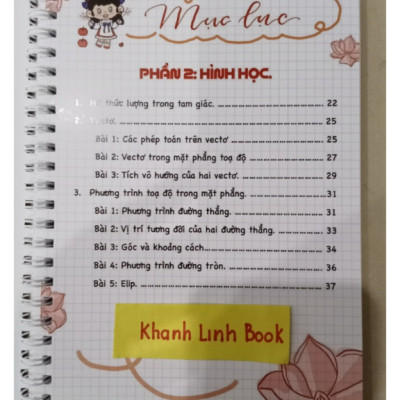 Mục lục
PHẦN 2: HÌNH HỌC.
1. Hệ thức lượng trong tam giác. 22
2. Vectơ. 25
Bài 1: Các phép toán trên vectơ 25
Bài 2: Vectơ trong mặt phẳng toạ độ 27
Bài 3: Tích vô hướng của hai vectơ. 29
3. Phương trình toạ độ trong mặt phẳng. 31
Bài 1: Phương trình đường thẳng. 31
Bài 2: Vị trí tương đối của hai đường thẳng. 33
Bài 3: Góc và khoảng cách 34
Bài 4: Phương trình đường tròn. 36
Bài 5: Elip. 37
Khanh Linh Book